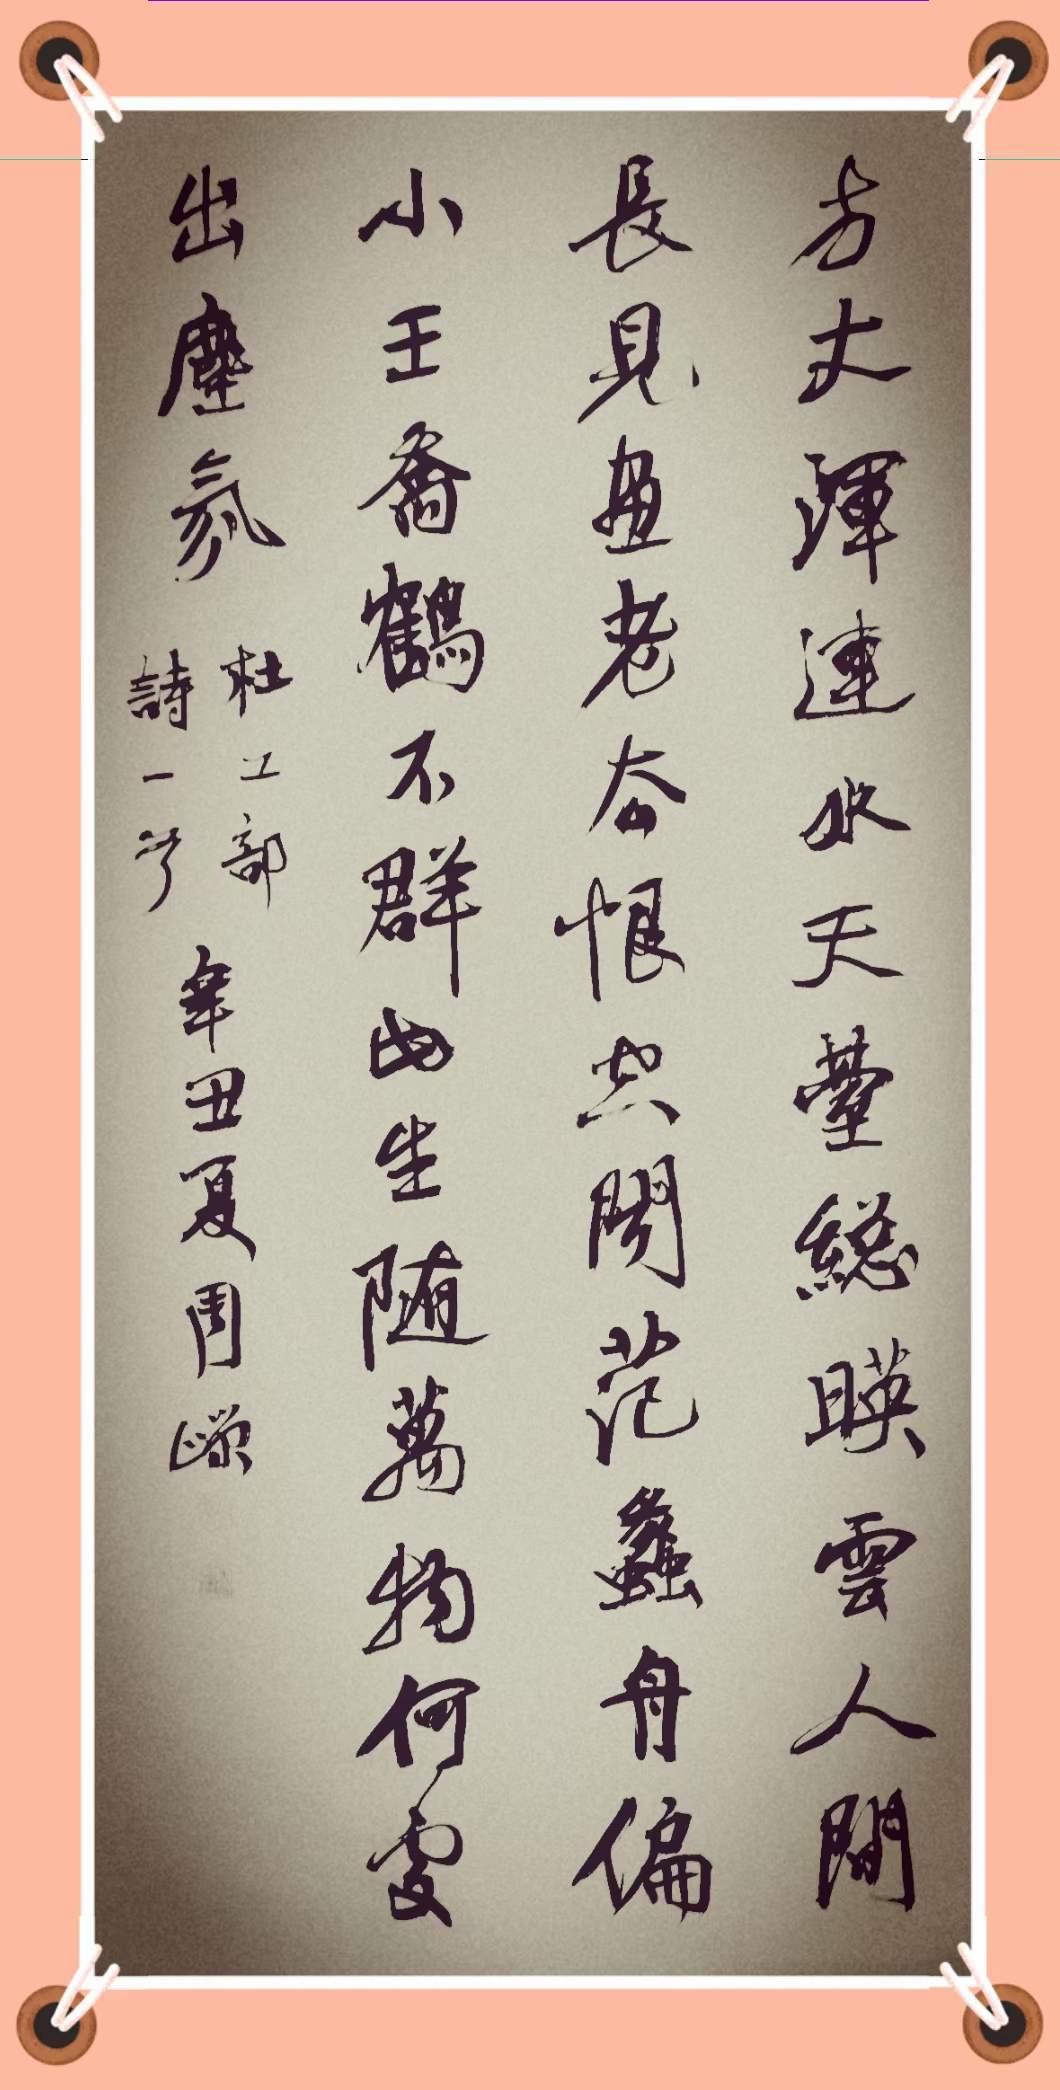 方丈渾連水天臺総暎雲人間
長見畫老去恨空聞范蠡舟偏
小王喬鶴不群此生随萬物何處
出塵氛
杜工部
詩一首
辛丑夏周